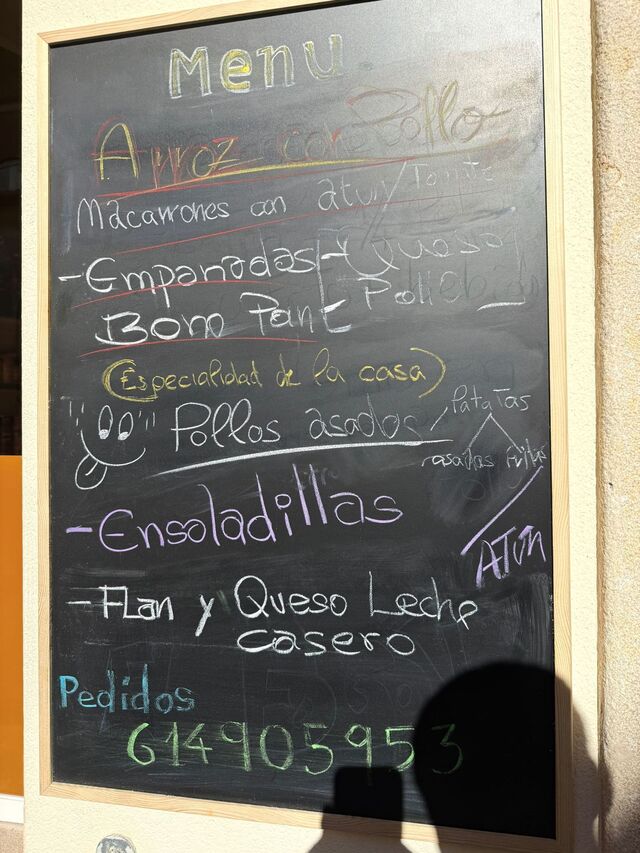 Menu
Arroz con Pollo
Macarrones con atun/Tomate
-Empanadas-Queso
Bom Pant Pollo
(Especialidad de la casa)
Pollos asados/Patatas
asadas fritas
-Ensaladillas
ATUn
-FLan y Queso Leche
casero
Pedidos
614905953